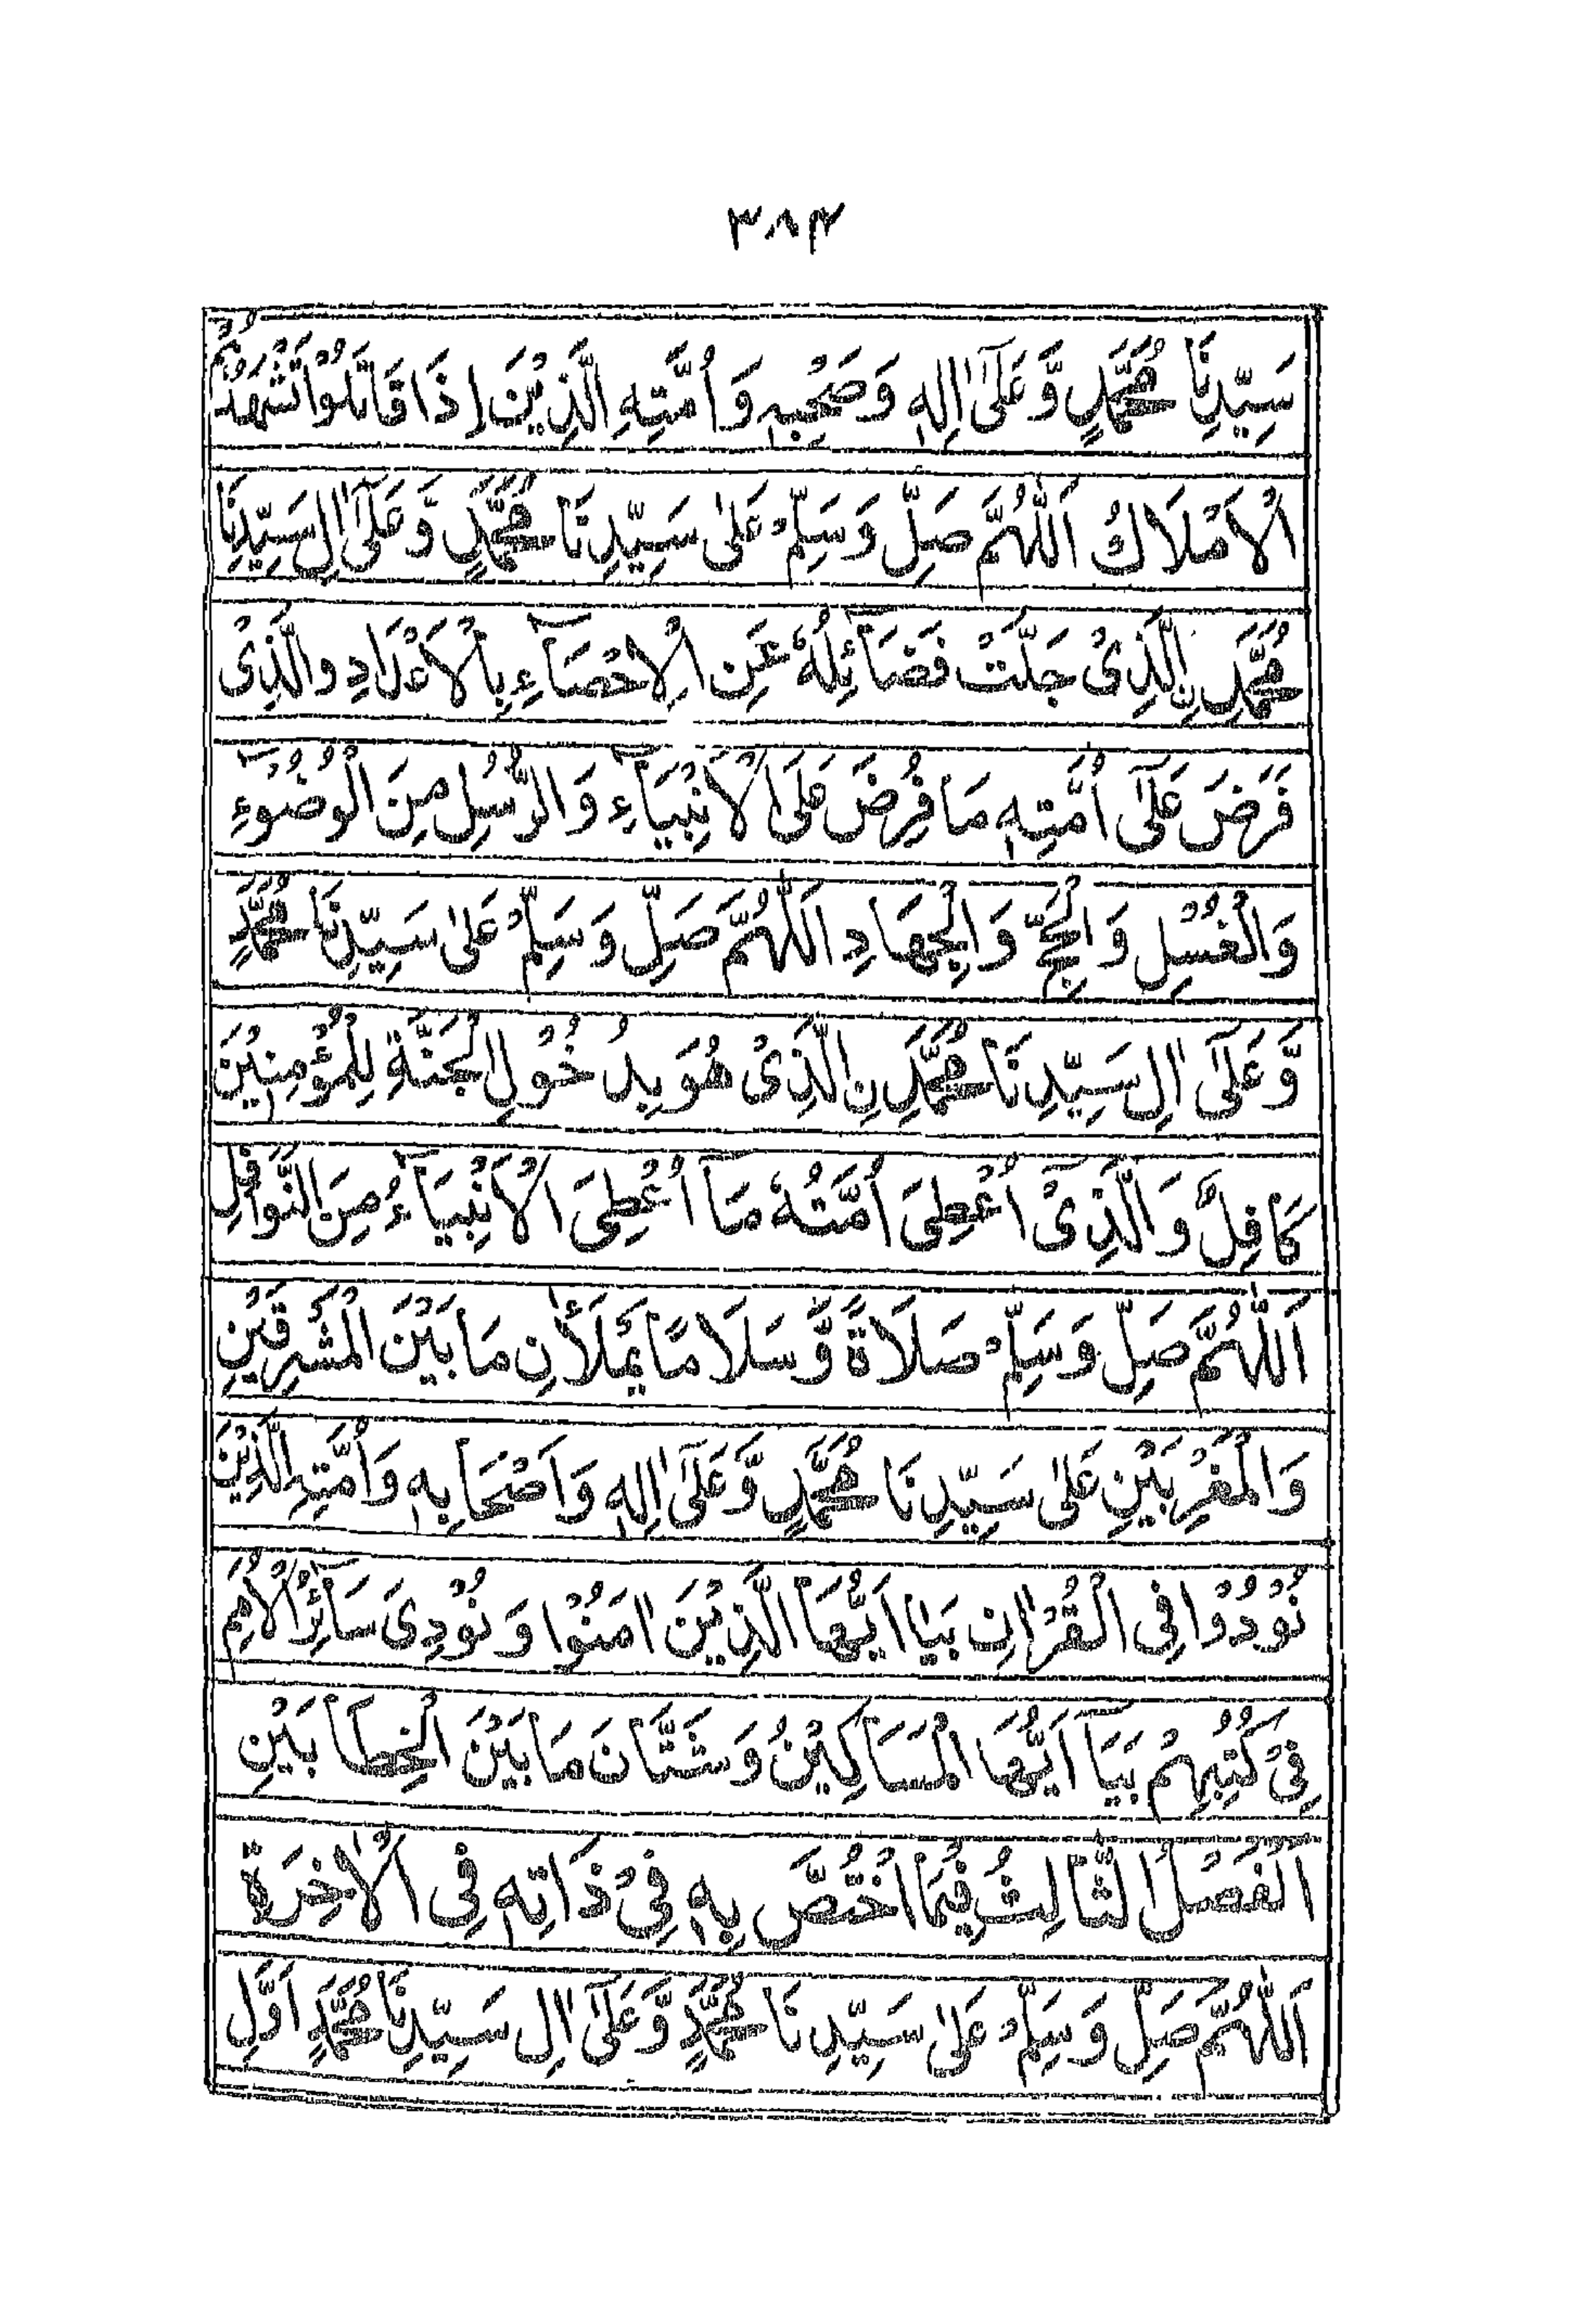 ٣٨٣
سَيِّدِنَا مُحَمَّدٍ وَّعَلَىٰٓ اٰلِهٖ وَصَحْبِهٖ وَاُمَّتِهِ الَّذِيْنَ اِذَا قَاتَلُوْا تَشْهَدُهُمُ
الْاَمْلَاكُ اَللّٰهُمَّ صَلِّ وَسَلِّمْ عَلٰى سَيِّدِنَا مُحَمَّدٍ وَّعَلَىٰٓ اٰلِ سَيِّدِنَا
مُحَمَّدِ نِ الَّذِىْ جَلَّتْ فَضَآئِلُهٗ عَنِ الْاِحْصَآءِ بِالْاَعْدَادِ والَّذِىْ
فَرَضَ عَلَىٰٓ اُمَّتِهٖ مَا فُرِضَ عَلَى الْاَنْبِيَآءِ وَالرُّسُلِ مِنَ الْوُضُوْٓءِ
وَالْغُسْلِ وَالْحَجِّ وَالْجِهَادِ اَللّٰهُمَّ صَلِّ وَسَلِّمْ عَلٰى سَيِّدِنَا مُحَمَّدٍ
وَّعَلَىٰٓ اٰلِ سَيِّدِنَا مُحَمَّدِ نِ الَّذِىْ هُوَ بِدُخُوْلِ الْجَنَّةِ لِلْمُؤْمِنِيْنَ
كَافِلٌ وَالَّذِىْٓ اُعْطِىَ اُمَّتُهٗ مَآ اُعْطِىَ الْاَنْبِيَآءُ مِنَ النَّوَافِلِ
اَللّٰهُمَّ صَلِّ وَسَلِّمْ صَلَاةً وَّسَلَامًا يَمْلَأَانِ مَا بَيْنَ الْمَشْرِقَيْنِ
وَالْمَغْرِبَيْنِ عَلٰى سَيِّدِنَا مُحَمَّدٍ وَّعَلَىٰٓ اٰلِهٖ وَاَصْحَابِهٖ وَاُمَّتِهِ الَّذِيْنَ
نُوْدُوْا فِى الْقُرْاٰنِ بِيَآ اَيُّهَا الَّذِيْنَ اٰمَنُوْا وَنُوْدِىَ سَآئِرُ الْاُمَمِ
فِىْ كُتُبِهِمْ بِيَآ اَيُّهَا الْمَسَاكِيْنُ وَشَتَّانَ مَا بَيْنَ الْخِطَابَيْنِ
اَلْفَصْلُ الثَّالِثُ فِيْمَا اخْتُصَّ بِهٖ فِىْ ذَاتِهٖ فِى الْاٰخِرَةِ
اَللّٰهُمَّ صَلِّ وَسَلِّمْ عَلٰى سَيِّدِنَا مُحَمَّدٍ وَّعَلَىٰٓ اٰلِ سَيِّدِنَا مُحَمَّدٍ اَوَّلِ